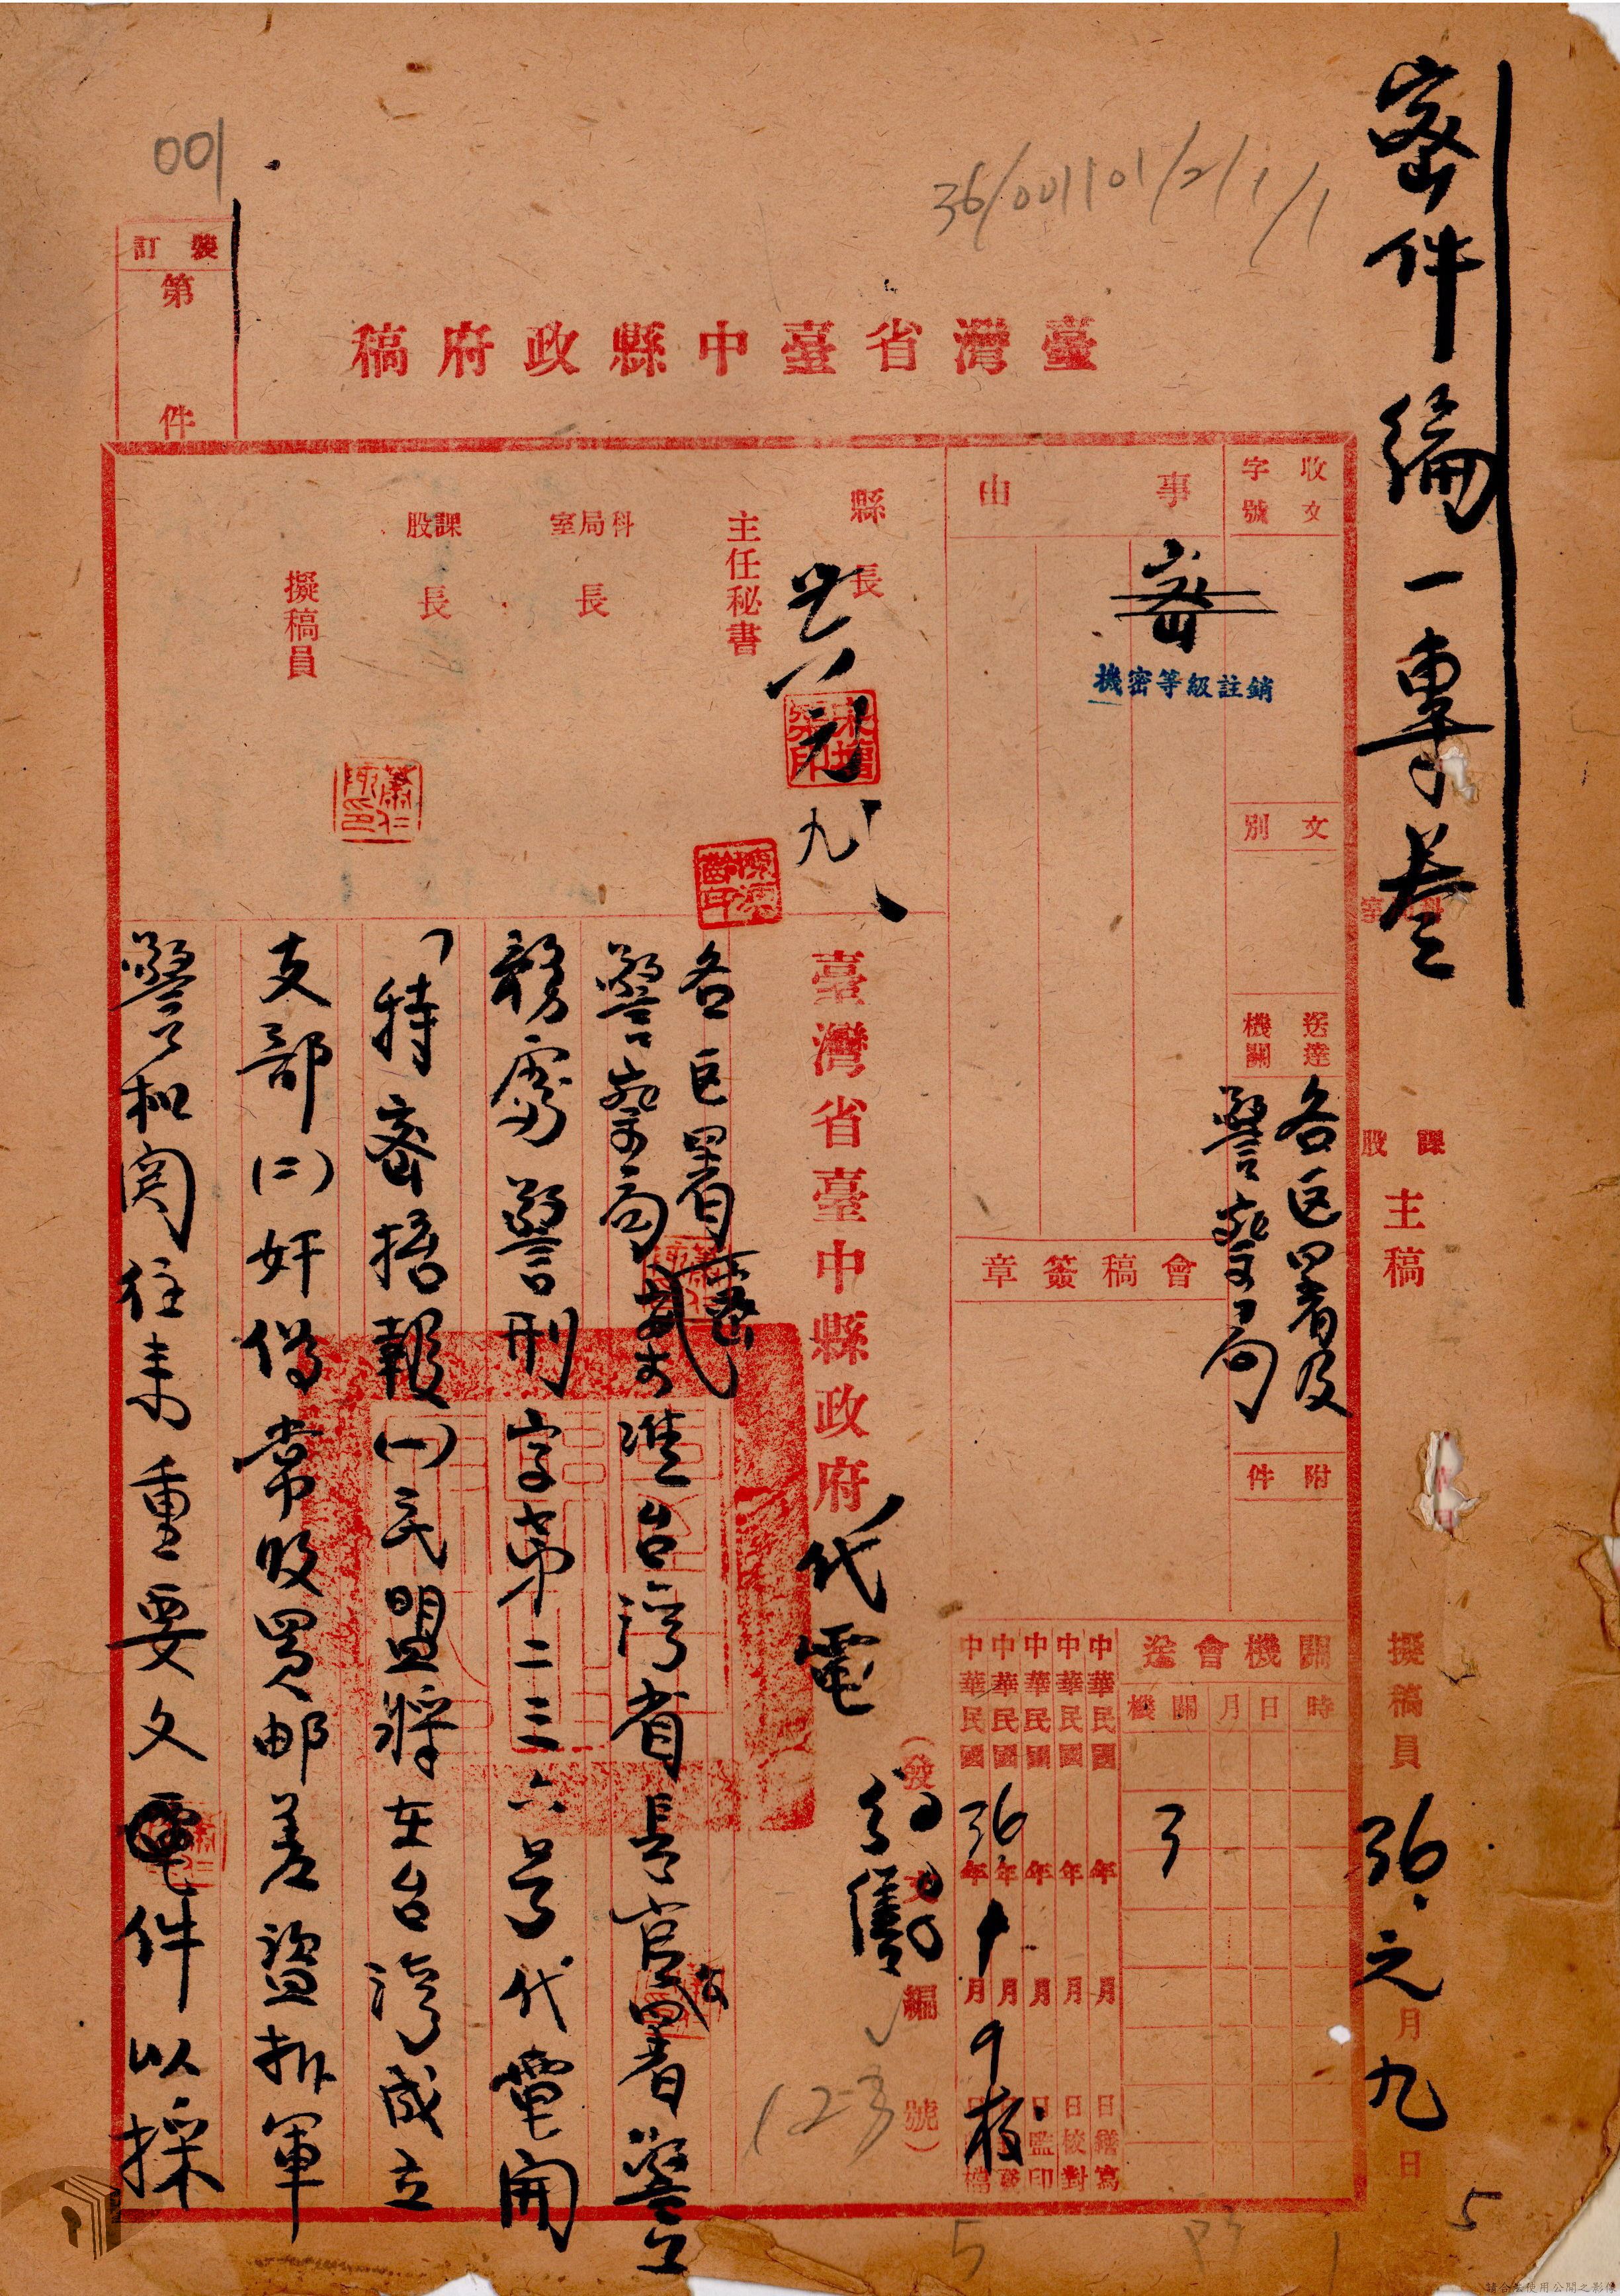 001
36/001101/2/1/1
密件編一專卷
裝訂
第
件
臺灣省臺中縣政府稿
收文
字號
事由
密
機密等級註銷
文別
送達機關
各區署及
警察局
附件
縣長
卅六元九
主任秘書
科局室長
課股長
擬稿員
會稿簽章
關機會送
時 日 月 關機
中華民國 年 月 日繕寫
中華民國 年 月 日校對
中華民國 年 月 日監印
中華民國36年 月
9
課股
主稿
擬稿員
36.元月九日
臺灣省臺中縣政府代電
(發文編號)
123
各区署
警察局
准台湾省長官公署警
務處警刑字第二三六号代電開
「特密据報(一)民盟將在台湾成立
支部(二)奸偽常收買邮差盜拆軍
警机関往来重要文電件以採
5
5
請合法使用公開之影像